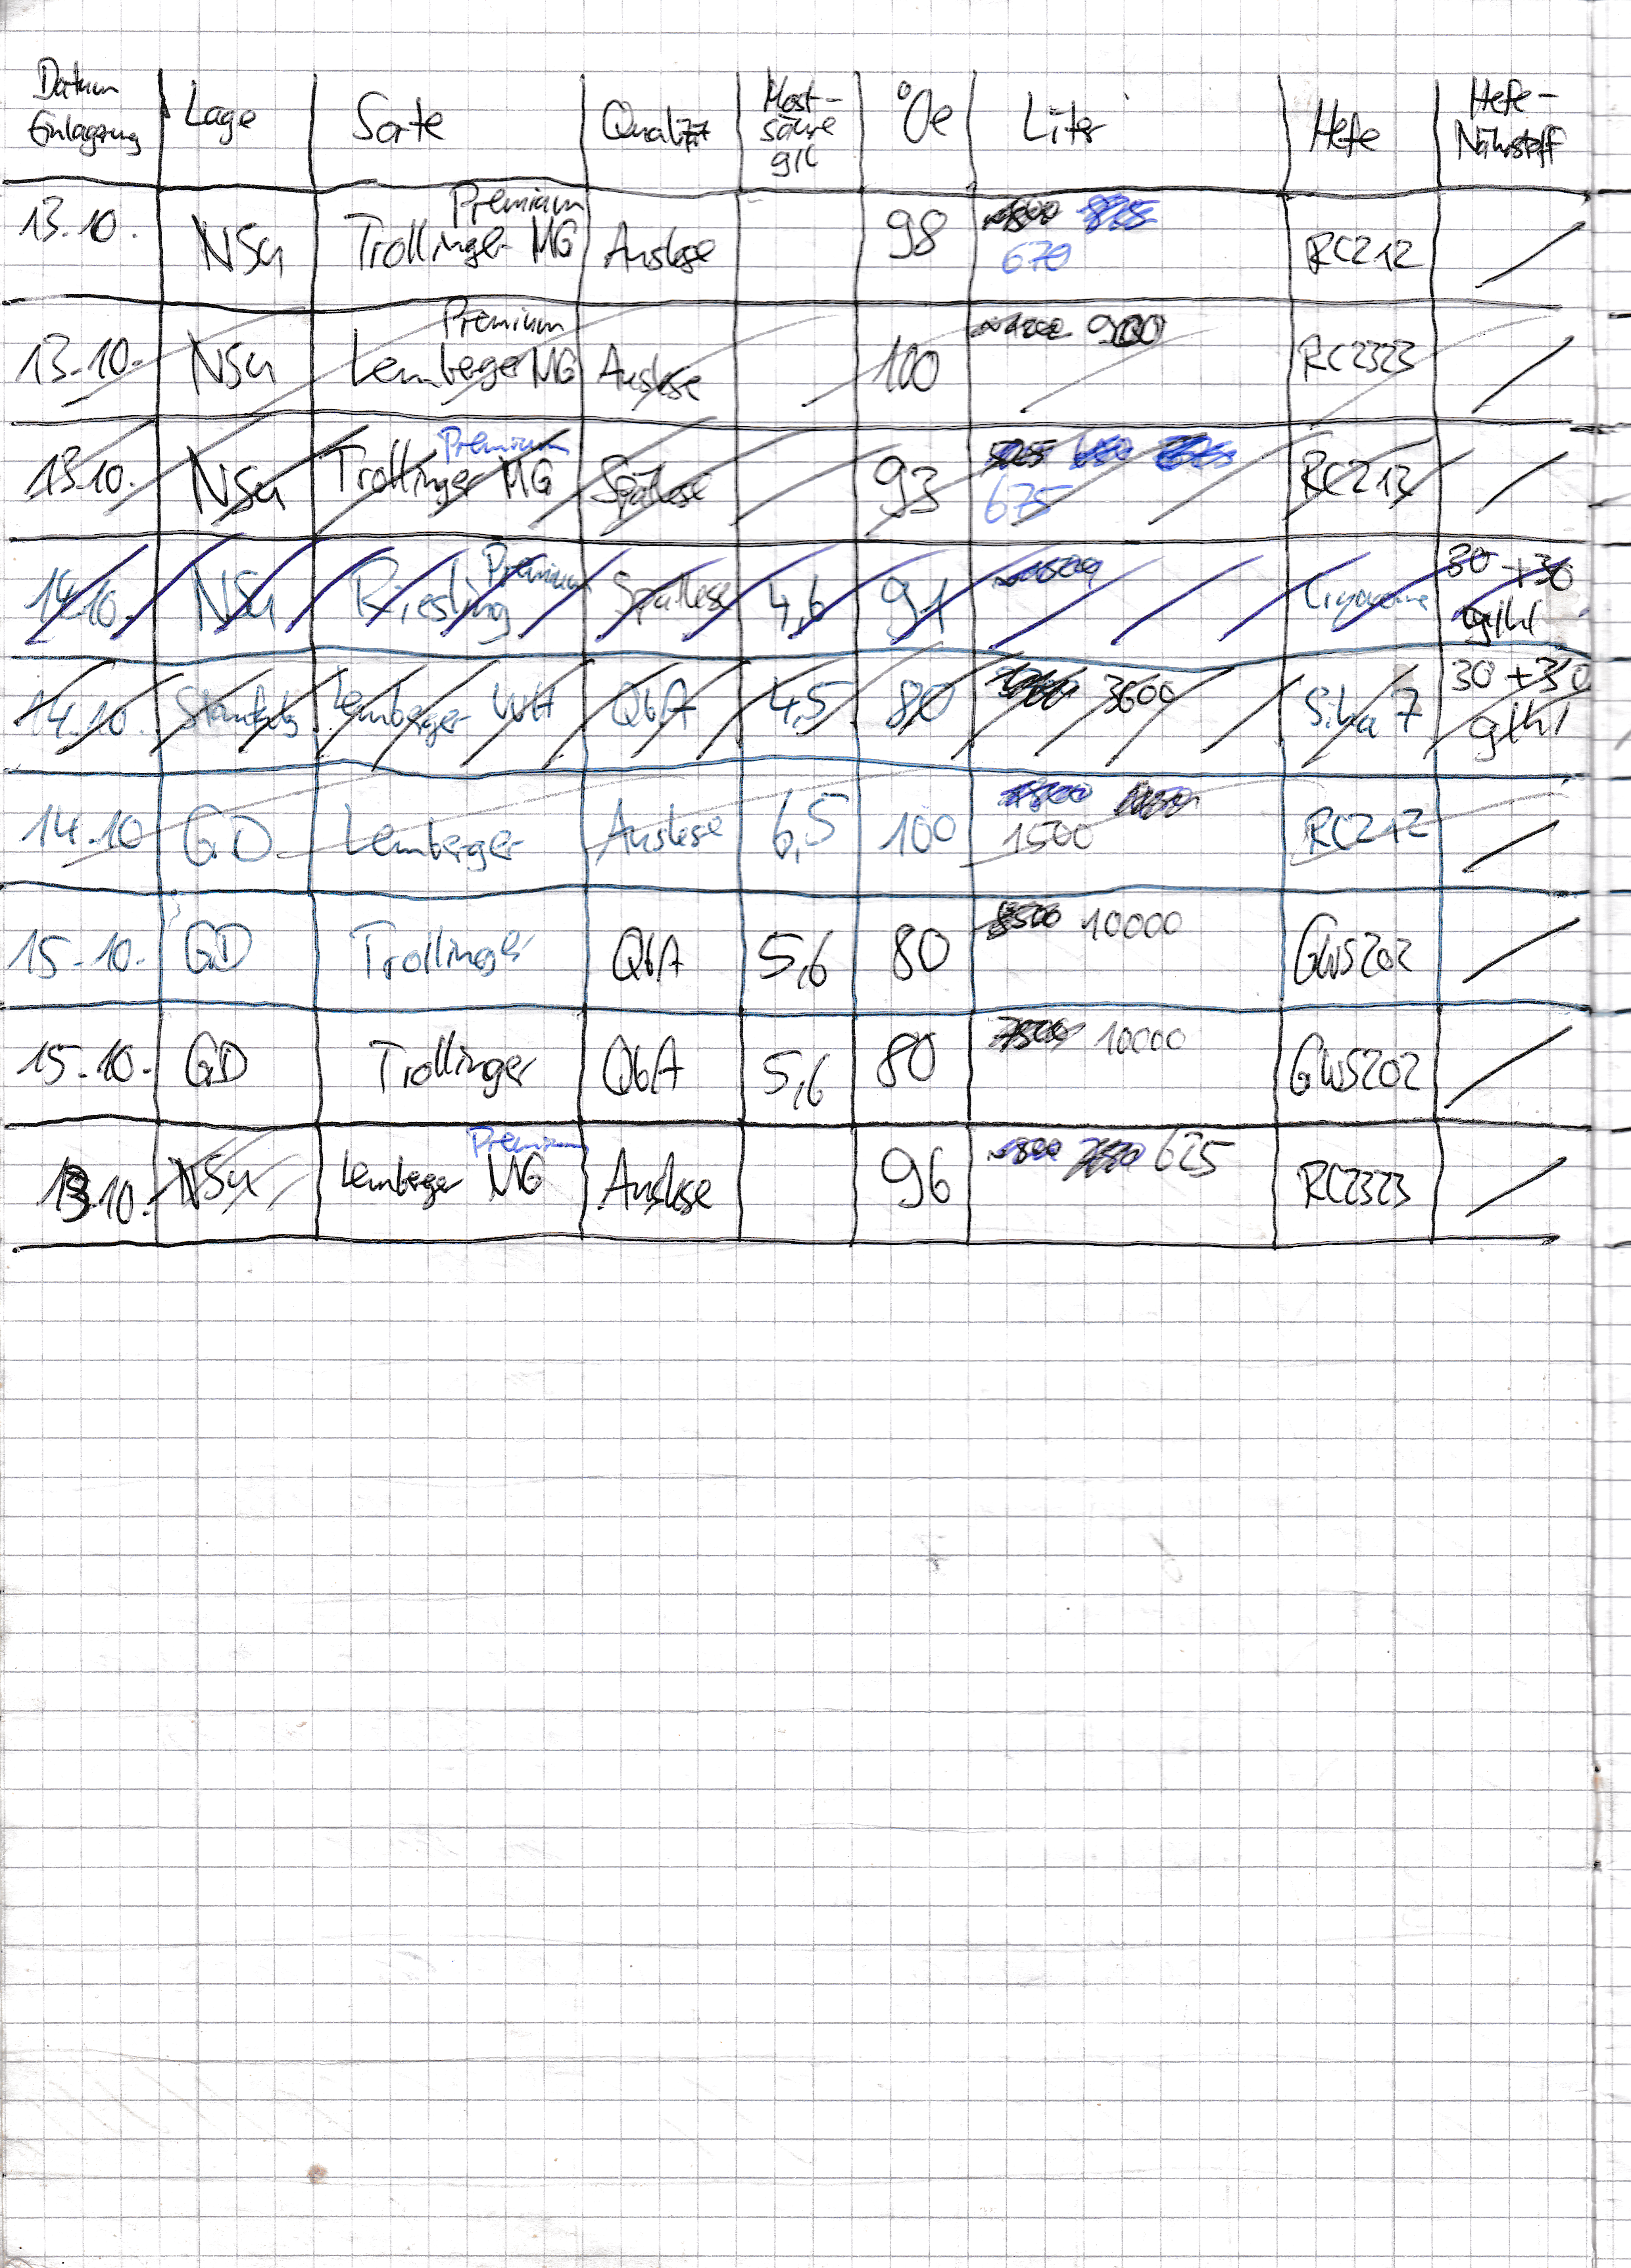 Datum Einlagerung Lage Sorte Qualität Most-säure g/l °Oe Liter Hefe Hefe-Nährstoff
13.10. NSu Premium Trollinger MG Auslese 98 670 RC212 /
13.10. NSu Premium Lemberger MG Auslese 100 900 RC2323 /
13.10. NSu Premium Trollinger MG Spätlese 93 675 RC212 /
14.10. NSu Premium Riesling Spätlese 4,6 91 30 + 30 g/hl
14.10. Lemberger WH QbA 4,5 80 3600 Siha 7 30 + 30 g/hl
14.10 GD Lemberger Auslese 6,5 100 1500 RC212 /
15.10. GD Trollinger QbA 5,6 80 10000 GWS202 /
15.10. GD Trollinger QbA 5,6 80 10000 GWS202 /
13.10. NSu Premium Lemberger MG Auslese 96 625 RC2323 /